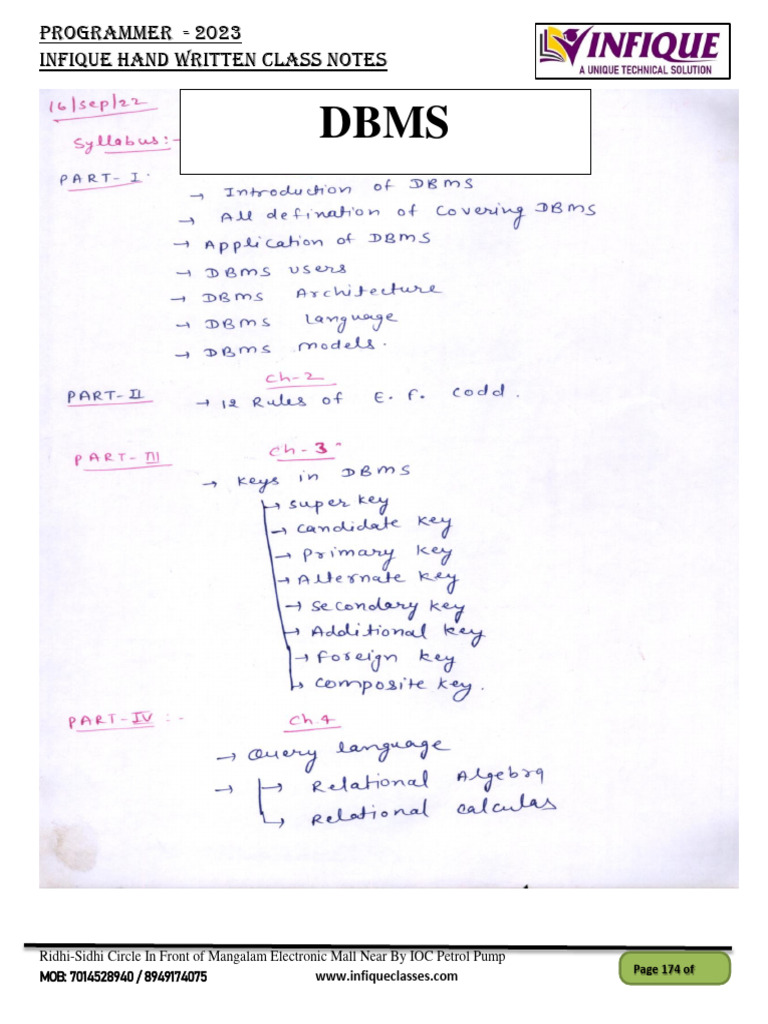 PROGRAMMER = 2023
INFIQUE HAND WRITTEN CLASS NOTES
INFIQUE
A UNIQUE TECHNICAL SOLUTION
16/sep/22
DBMS
Syllabus:-
PART-I.
→ Introduction of DBMS
→ All defination of covering DBMS
→ Application of DBMS
→ DBMS users
→ DBMS Architecture
→ DBMS language
→ DBMS models.
Ch-2
PART-II → 12 Rules of E. F. codd.
PART-III Ch-3"
→ keys in DBMS
→ super key
→ candidate key
→ primary key
→ Alternate key
→ secondary key
→ Additional key
→ foreign key
→ composite key.
PART-IV :- Ch.4
→ Query language
→ → Relational Algebra
→ Relational calculas
Ridhi-Sidhi Circle In Front of Mangalam Electronic Mall Near By IOC Petrol Pump
MOB: 7014528940 / 8949174075 www.infiqueclasses.com
Page 174 of